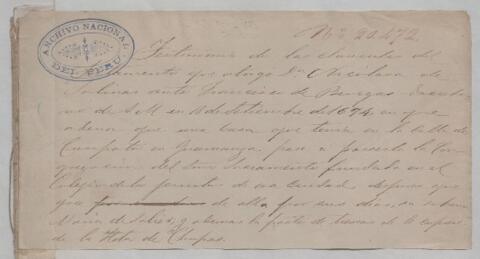 ARCHIVO NACIONAL
DEL PERU
Nº 20.472
Testimonio de las clausulas del
testamento que otorgó Dª Nicolasa de
Salinas ante Francisco de Burgos
no de S.M. en de Setiembre de 1674, en que
ordena que una casa que tenia en la calle de
en Guamanga, pase a poseerla la Con-
gregacion del Smo Sacramento fundada en el
Colegio de la de esa ciudad, despues que
de ella por sus dias, su
Maria de y ademas la parte de tierras de
de la Hda de Chupas.